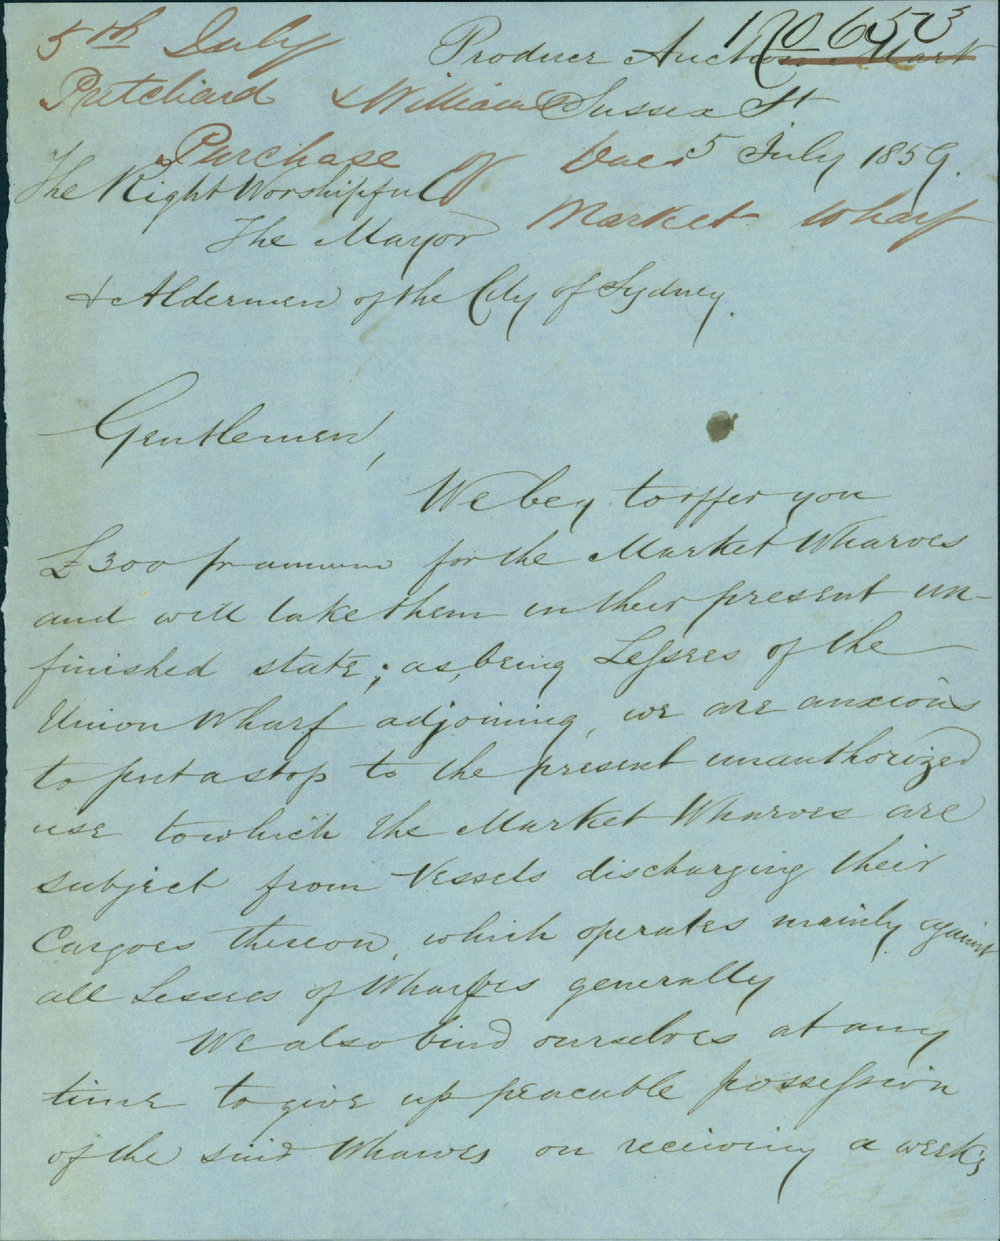 5th July
Pritchard & Williams
Purchase of Dues
Market Wharf
170 650 3
Produce Auction Mart
Sussex St
5 July 1859.
The Right Worshipful
The Mayor
& Aldermen of the City of Sydney.
Gentlemen,
We beg to offer you
£300 praumum for the Market Wharves
and will take them in their present un-
finished state; as, being Lessees of the
Union Wharf adjoining, we are anxious
to put a stop to the present unauthorized
use to which the Market Wharves are
subject from Vessels discharging their
Cargoes thereon, which operates mainly against
all Lessees of Wharfes generally
We also bind ourselves at any
time to give up peacable possession
of the said Wharves on receiving a week's